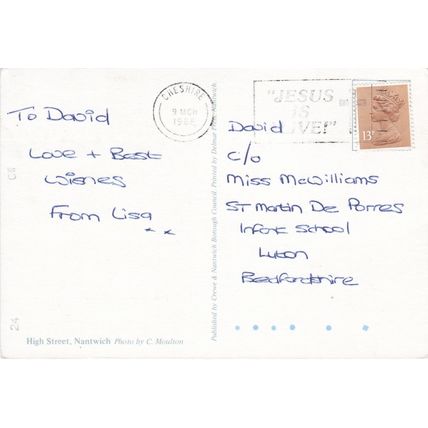 To David
Love + Best
Wishes
From Lisa
x x
High Street, Nantwich Photo by C. Moulton
Published by Crewe & Nantwich Borough Council. Printed by Delmar Press, Nantwich
CHESHIRE
9 MCH
"JESUS
IS
13P
David
c/o
Miss McWilliams
St Martin De Porres
Infant School
Luton
Bedfordshire
24